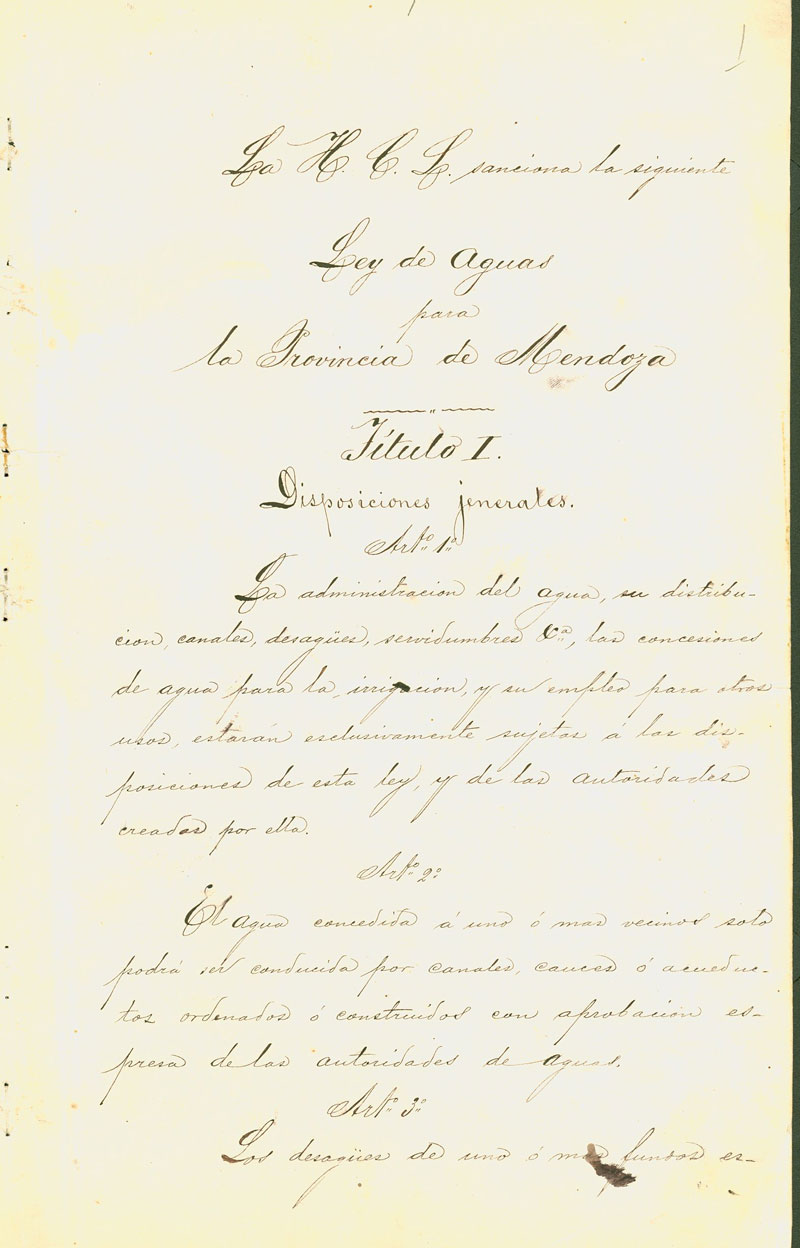 1
La H. C. L. sanciona la siguiente
Ley de Aguas
para
la Provincia de Mendoza
Título I.
Disposiciones jenerales.
Artº 1º
La administracion del agua, su distribu-
cion, canales, desagües, servidumbres &ª, las concesiones
de agua para la irrigacion, y su empleo para otros
usos, estarán esclusivamente sujetas á las dis-
posiciones de esta ley, y de las autoridades
creadas por ella.
Artº 2º
El agua concedida á uno ó mas vecinos solo
podrá ser conducida por canales, cauces ó acueduc-
tos ordenados ó construidos con aprobacion es-
presa de las autoridades de aguas.
Artº 3º
Los desagües de uno ó mas fundos es-